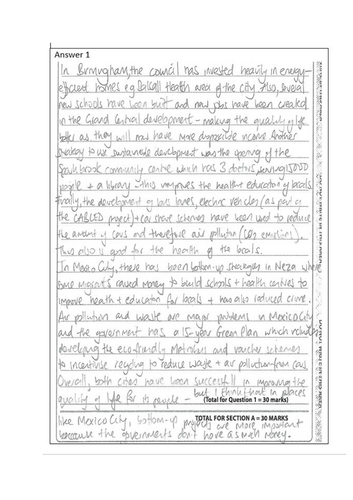 Answer 1
In Birmingham, the council has invested heavily in energy-
efficient homes e.g Balsall Heath area of the city. Also, several
new schools have been built and new jobs have been created
in the Grand Central development - making the quality of life
better as they will now have more disposable income. Another
strategy to use sustainable development was the opening of the
Sparkbrook community centre which has 3 doctors, serving 15000
people + a library - this improves the health + education of locals.
Finally, the development of bus lanes, electric vehicles (as part of
the CABLED project) + car share schemes have been used to reduce
the amount of cars and therefore air pollution (CO2 emissions).
This also is good for the health of the locals.
In Mexico City, there has been bottom-up strategies in Neza where
some migrants raised money to build schools + health centres to
improve health + education for locals + has also reduced crime.
Air pollution and waste are major problems in Mexico City
and the government has a 15-year Green Plan which includes
developing the eco friendly Metrobus and voucher schemes
to incentivise recycling to reduce waste + air pollution from cars.
Overall, both cities have been successful in improving the
quality of life for its people - but I think that in places
(Total for Question 1 = 30 marks)
TOTAL FOR SECTION A = 30 MARKS
like Mexico City, bottom-up projects are more important
because the governments don't have as much money.